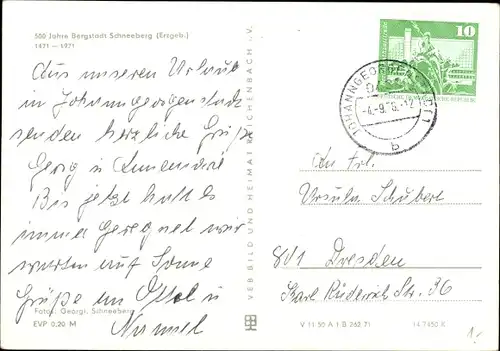 500 Jahre Bergstadt Schneeberg (Erzgeb.)
1471 — 1971
Aus unseren Urlaub
in Johanngeorgenstadt
senden herzliche Grüße
Georg u.
Bis jetzt hat es
immer geregnet wir
warten auf Sonne
Grüße an Ottel u
Fotos: Georgi, Schneeberg
EVP 0,20 M
VEB BILD UND HEIMAT REICHENBACH i. V.
10
DEUTSCHE DEMOKRATISCHE REPUBLIK
JOHANNGEORGENSTADT 1
-4.-9.76.-12
b
An Frl.
Ursula Schubert
801 Dresden
Karl Rüderich Str. 36
V 11 50 A 1 B 262 71
14 7450 K
1.-